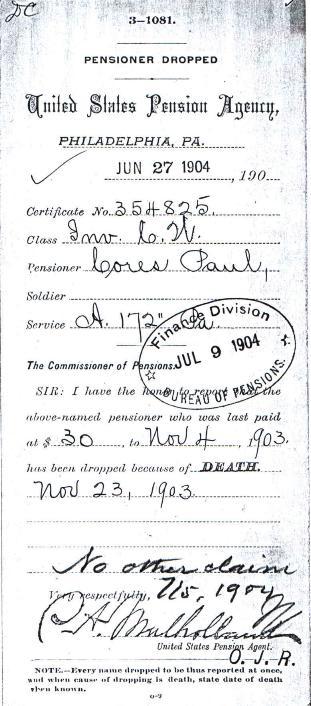 DC
3—1081.
PENSIONER DROPPED
United States Pension Agency,
PHILADELPHIA, PA.
JUN 27 1904, 190
Certificate No. 354825.
Class Inv. C. W.
Pensioner Cores Paul,
Soldier
Service A. 172" Pa
Finance Division
JUL 9 1904
BUREAU OF PENSIONS.
The Commissioner of Pensions.
SIR: I have the honor to report that the
above-named pensioner who was last paid
at $ 30, to Nov 4, 1903.
has been dropped because of DEATH.
Nov 23, 1903.
No other claim
Very respectfully, 7/5, 1904
Mulholland
United States Pension Agent.
O. J. R.
NOTE.—Every name dropped to be thus reported at once,
and when cause of dropping is death, state date of death
when known.